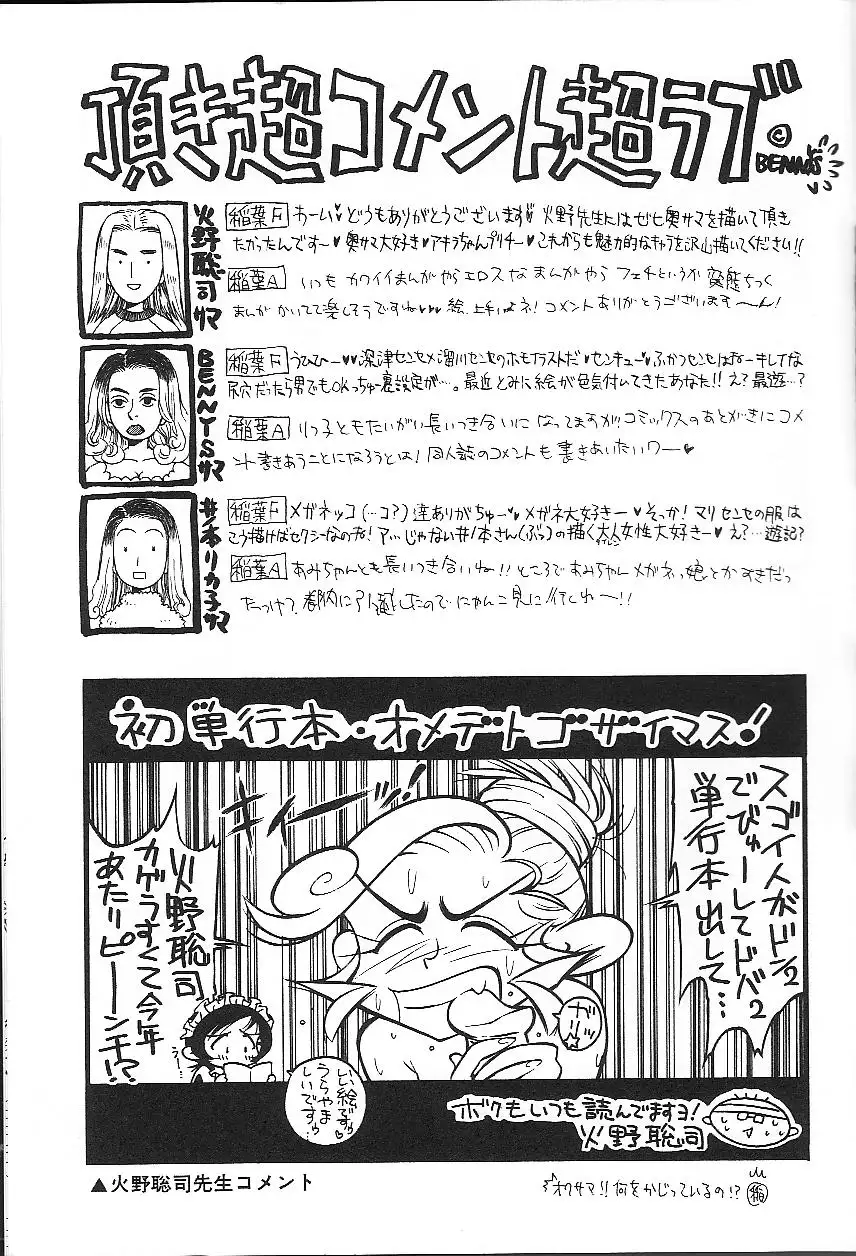 頂き超コメント超ラブ。
©BENNY'S
火野聡司サマ
稲葉F おーい♥どうもありがとうございます♥火野先生にはぜヒ奥サマを描いて頂き
たかったんです〜♥奥サマ大好き♥アキラちゃんプリチー♥これからも魅力的なキャラを沢山描いてください!!
稲葉A いつもカワイイまんがやらエロスなまんがやらフェチというか変態ちっく
まんがかいてて楽しそうですね♥♥♥絵、上手いよネ!コメントありがとうございます〜ん!
BENNY'Sサマ
稲葉F うひひー♥♥深津センセ×溜川センセのホモイラストだ♥センキュー♥ふかつセンセはおーキしてな
尻穴だったら男でもOKっちゅー裏設定が…。最近とみに絵が色気付いてきたあなた!!え?最遊…?
稲葉A りっ子ともたいがい長いつき合いになってますがッコミックスのあとがきにコメ
ント書きあうことになろうとは!同人誌のコメントも書きあいたいワー♥
井ノ本リカ子サマ
稲葉F メガネッコ(…コ?)達ありがちゅー♥メガネ大好きー♥そっか!マリセンセの服は
こう描けばセクシーなのね!ア…じゃない井ノ本さん(ぷっ)の描く大人女性大好きー♥え?…遊記?
稲葉A あみちゃんとも長いつき合いね!!ところであみちゃんメガネっ娘とかすきだっ
たっけ?都内に引越したのでにゃんこ見に行くわ〜!!
初単行本・オメデトゴザイマス!
スゴイ人がドン2
でびゅーしてドバ2
単行本出して…
キーッ!
火野聡司
カゲうすくて今年
あたりピーンチ!?
ガッ
うー…
いい絵ですゥ
うらやま
しいですゥ…
ボクもいつも読んでますヨ!
火野聡司
▲火野聡司先生コメント
オクサマ!!何をかじっているの!? 稲